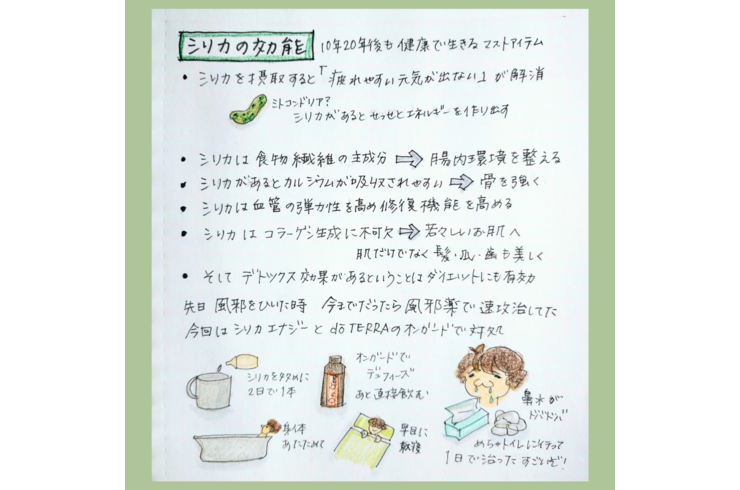 シリカの効能 10年20年後も健康で生きるマストアイテム
• シリカを摂取すると「疲れやすい元気が出ない」が解消
ミトコンドリア?
シリカがあるとせっせとエネルギーを作り出す
• シリカは食物繊維の主成分 ⇨ 腸内環境を整える
• シリカがあるとカルシウムが吸収されやすい ⇨ 骨を強く
• シリカは血管の弾力性を高め修復機能を高める
• シリカはコラーゲン生成に不可欠 ⇨ 若々しいお肌へ
肌だけでなく髪・爪・歯も美しく
• そして デトックス効果があるということはダイエットにも有効
先日 風邪をひいた時 今までだったら風邪薬で速攻治してた
今回はシリカエナジーとdōTERRAのオンガードで対処
シリカを多めに
2日で1本
オンガードで
デュフィーズ
あと直接飲む
鼻水が
ドバドバ
身体
あたためて
早目に
就寝
めちゃトイレに行って
1日で治ったすごいぞ!